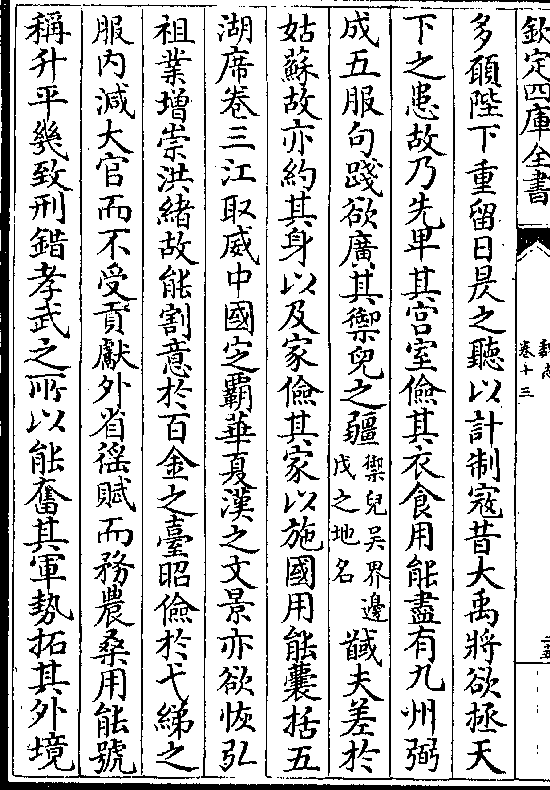 欽定四庫全書
卷十三
多願陛下重留日昃之聽以計制寇昔大禹將欲拯天
下之患故乃先卑其宫室儉其衣食用能盡有九州弼
成五服句踐欲廣其禦兒之疆禦兒吳界邊戍之地名馘夫差於
姑蘇故亦約其身以及家儉其家以施國用能囊括五
湖席卷三江取威中國定霸華夏漢之文景亦欲恢弘
祖業增崇洪緒故能割意於百金之臺昭儉於弋綈之
服内減大官而不受貢獻外省徭賦而務農桑用能號
稱升平幾致刑錯孝武之所以能奮其軍勢拓其外境